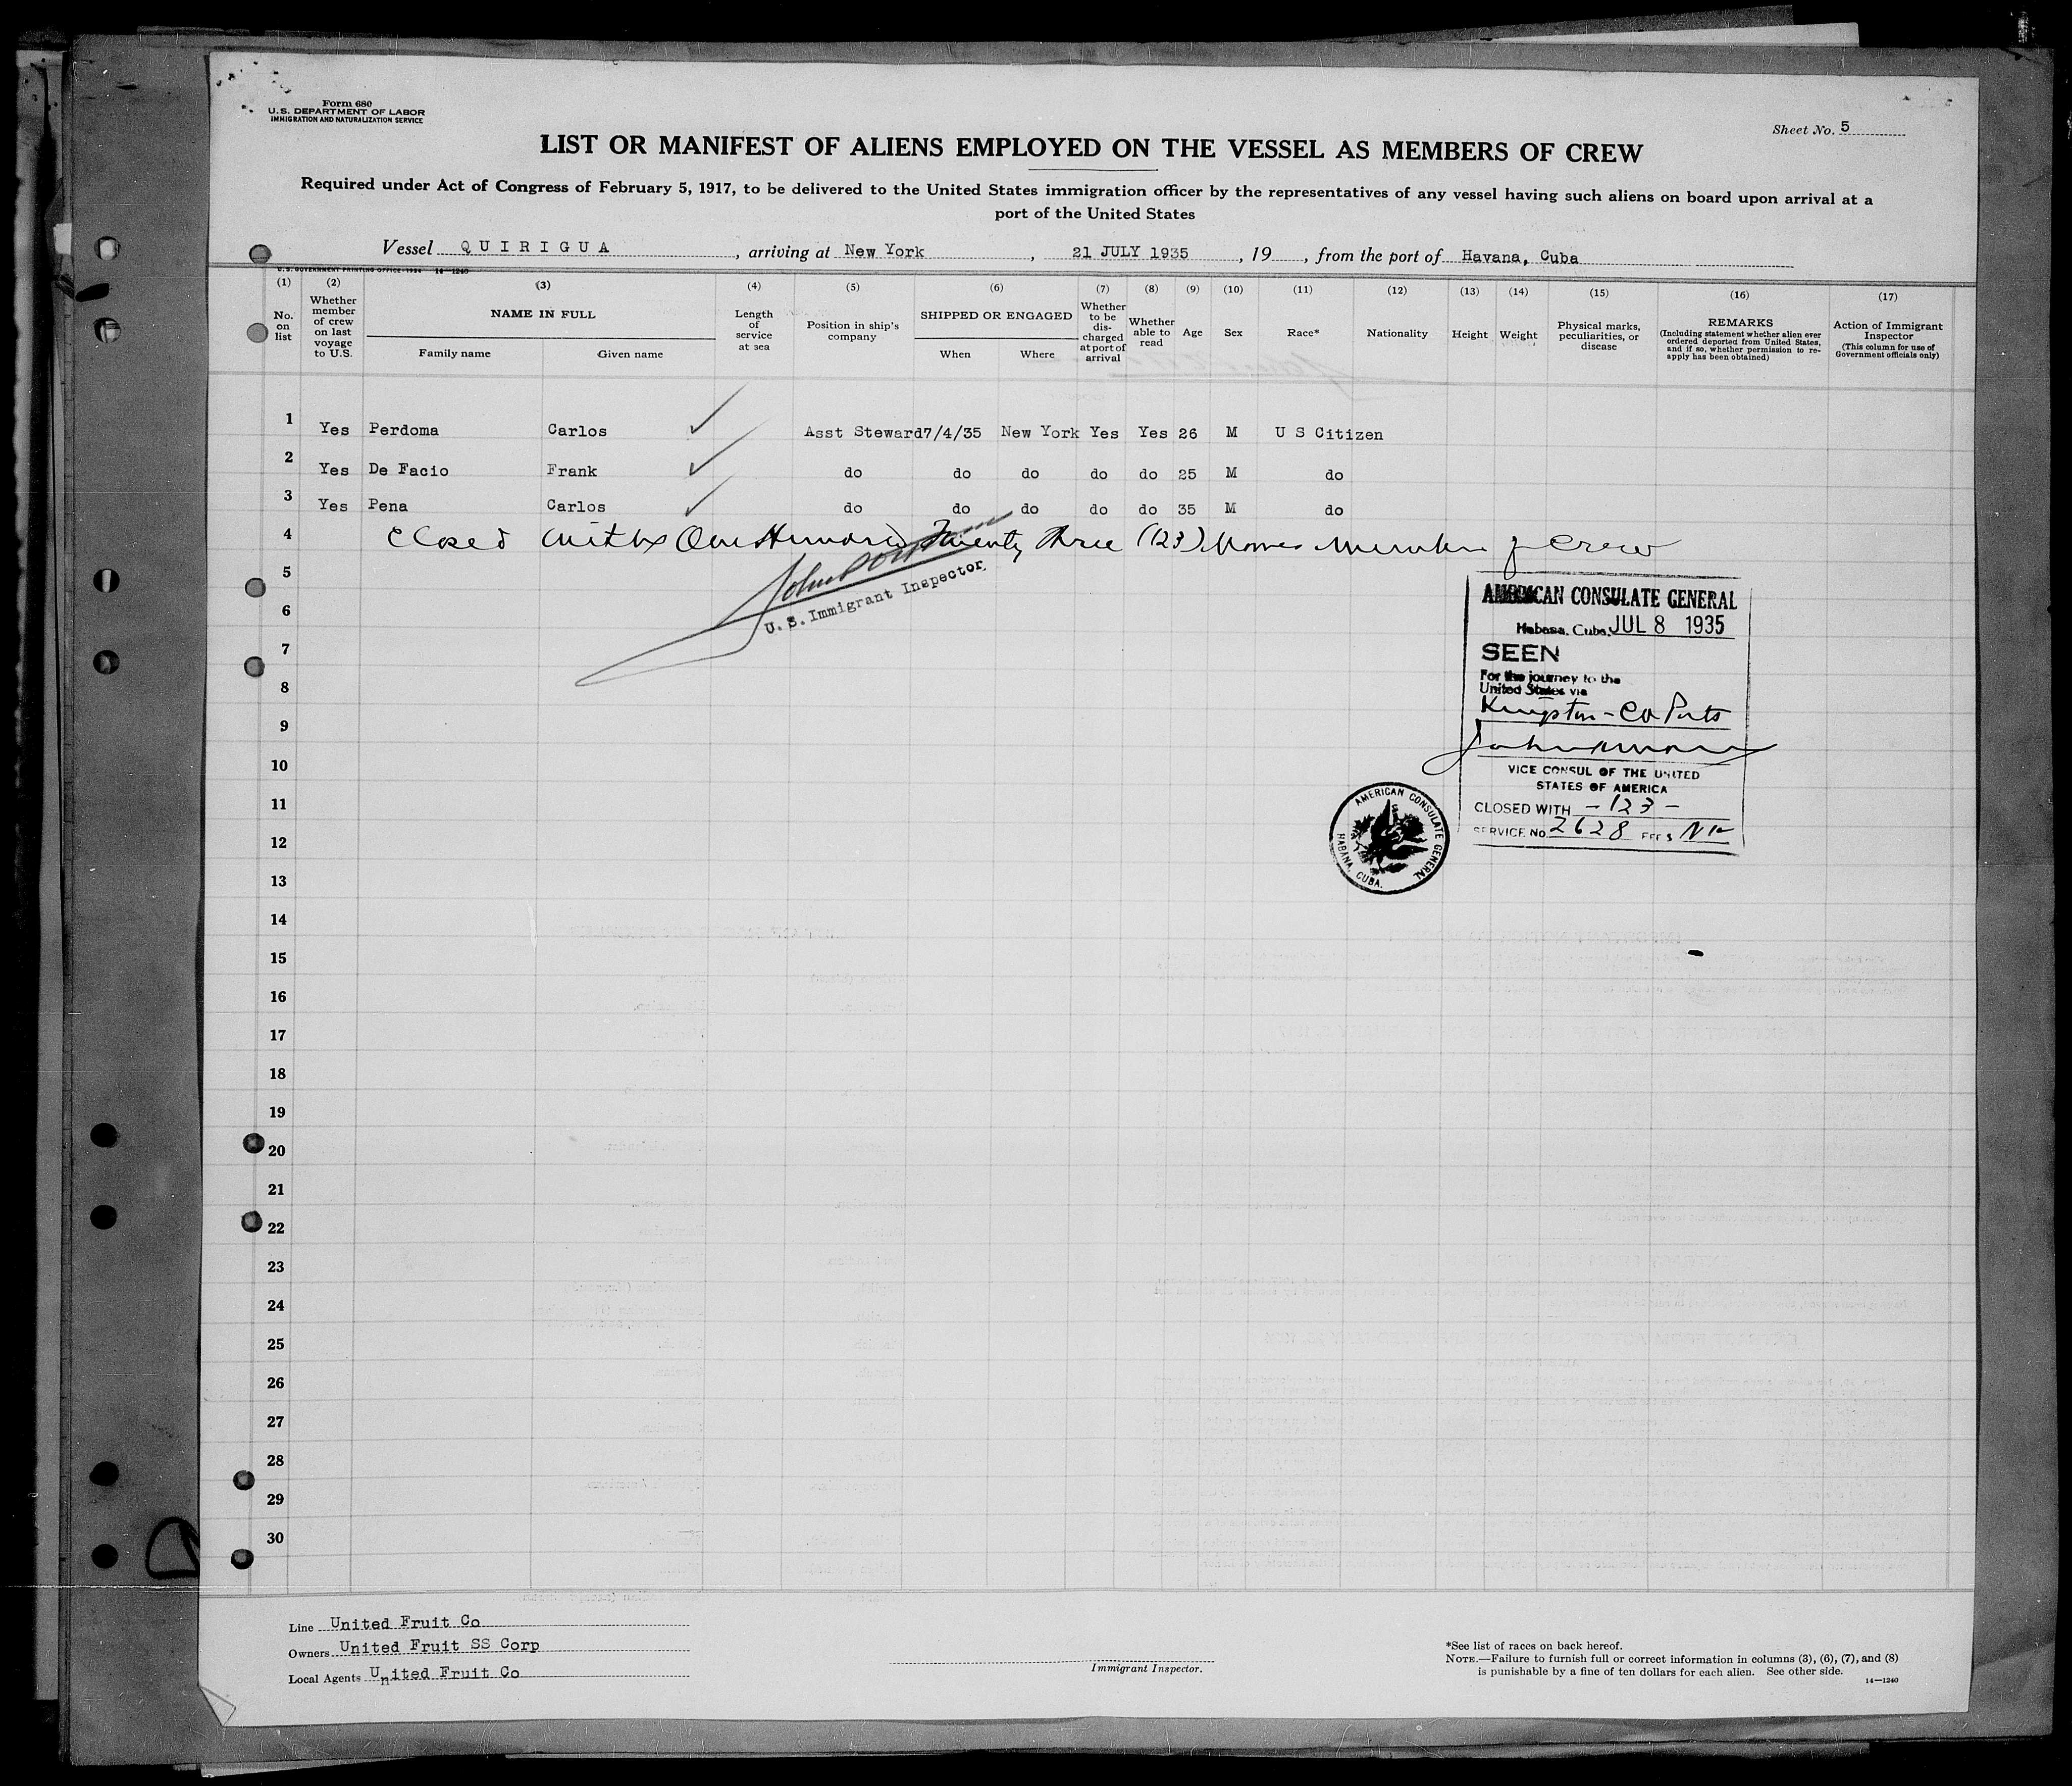 Form 680
U.S. DEPARTMENT OF LABOR
IMMIGRATION AND NATURALIZATION SERVICE
Sheet No. 5
LIST OR MANIFEST OF ALIENS EMPLOYED ON THE VESSEL AS MEMBERS OF CREW
Required under Act of Congress of February 5, 1917, to be delivered to the United States immigration officer by the representatives of any vessel having such aliens on board upon arrival at a
port of the United States
Vessel QUIRIGUA, arriving at New York, 21 JULY 1935, 19, from the port of Havana, Cuba
U. S. GOVERNMENT PRINTING OFFICE: 1934 14—1240
(1) No. on list
(2) Whether member of crew on last voyage to U.S.
(3) NAME IN FULL
Family name Given name
(4) Length of service at sea
(5) Position in ship's company
(6) SHIPPED OR ENGAGED
When Where
(7) Whether to be discharged at port of arrival
(8) Whether able to read
(9) Age
(10) Sex
(11) Race*
(12) Nationality
(13) Height
(14) Weight
(15) Physical marks, peculiarities, or disease
(16) REMARKS (Including statement whether alien ever ordered deported from United States, and if so, whether permission to reapply has been obtained)
(17) Action of Immigrant Inspector (This column for use of Government officials only)
1 Yes Perdoma Carlos Asst Steward 7/4/35 New York Yes Yes 26 M U S Citizen
2 Yes De Facio Frank do do do do do 25 M do
3 Yes Pena Carlos do do do do do 35 M do
4 Closed with One Hundred Twenty Three (123) Names Members of Crew
5
U. S. Immigrant Inspector.
6
7
8
9
10
11
12
13
14
15
16
17
18
19
20
21
22
23
24
25
26
27
28
29
30
AMERICAN CONSULATE GENERAL
Habana, Cuba, JUL 8 1935
SEEN
For the journey to the
United States via
Kingston - Co Ports
VICE CONSUL OF THE UNITED
STATES OF AMERICA
CLOSED WITH - 123 -
SERVICE No. 2628 FEE $
AMERICAN CONSULATE GENERAL
HABANA, CUBA.
Line United Fruit Co
Owners United Fruit SS Corp
Local Agents United Fruit Co
Immigrant Inspector.
*See list of races on back hereof.
NOTE.—Failure to furnish full or correct information in columns (3), (6), (7), and (8)
is punishable by a fine of ten dollars for each alien. See other side.
14—1240